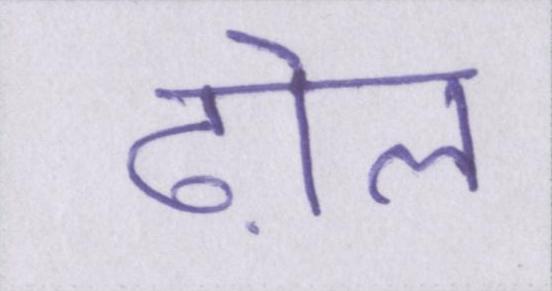 ढ़ोल